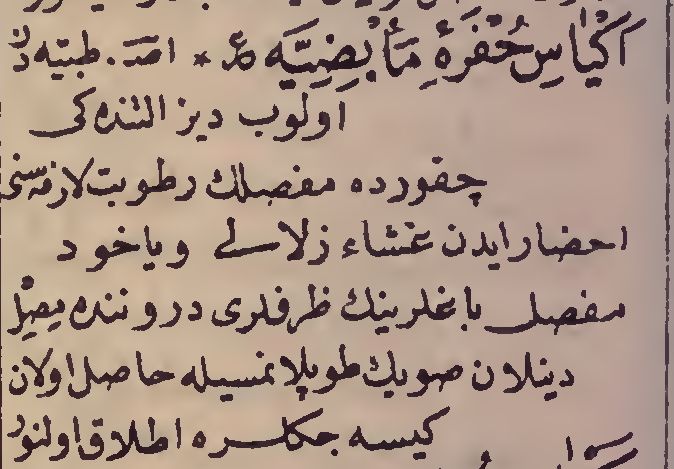 اَكْيَاسِ حُفْرَۀِ مَأْبِضِيَّه ع * اصـ. طبیه دن
اولوب دیز التنده كی
چقورده مفصلك رطوبت لازمه سنی
احضار ایدن غشاء زلالی ویاخود
مفصل باغلرینك ظرفلری دروننده یصیل
دینلان صویك طوپلانمسیله حاصل اولان
كیسه جكلره اطلاق اولنور